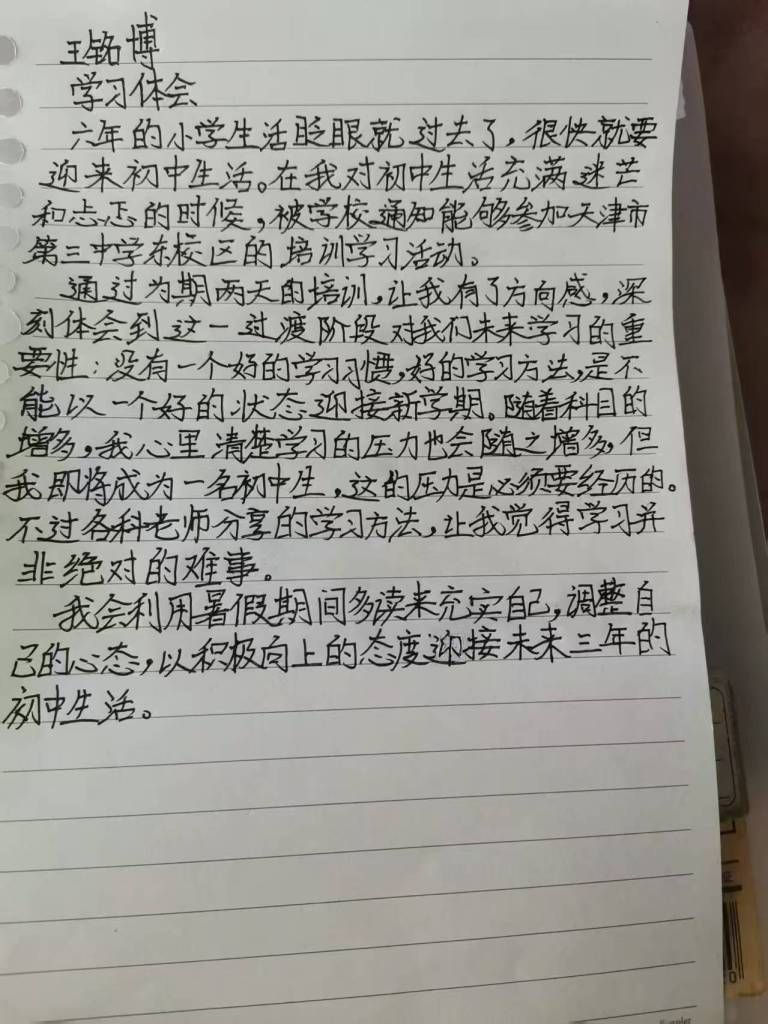 王铭博
学习体会
六年的小学生活眨眼就过去了，很快就要
迎来初中生活。在我对初中生活充满迷芒
和忐忑的时候，被学校通知能够参加天津市
第三中学东校区的培训学习活动。
通过为期两天的培训，让我有了方向感，深
刻体会到这一过渡阶段对我们未来学习的重
要性：没有一个好的学习习惯，好的学习方法，是不
能以一个好的状态迎接新学期。随着科目的
增多，我心里清楚学习的压力也会随之增多，但
我即将成为一名初中生，这的压力是必须要经历的。
不过各科老师分享的学习方法，让我觉得学习并
非绝对的难事。
我会利用暑假期间多读来充实自己，调整自
己的心态，以积极向上的态度迎接未来三年的
初中生活。